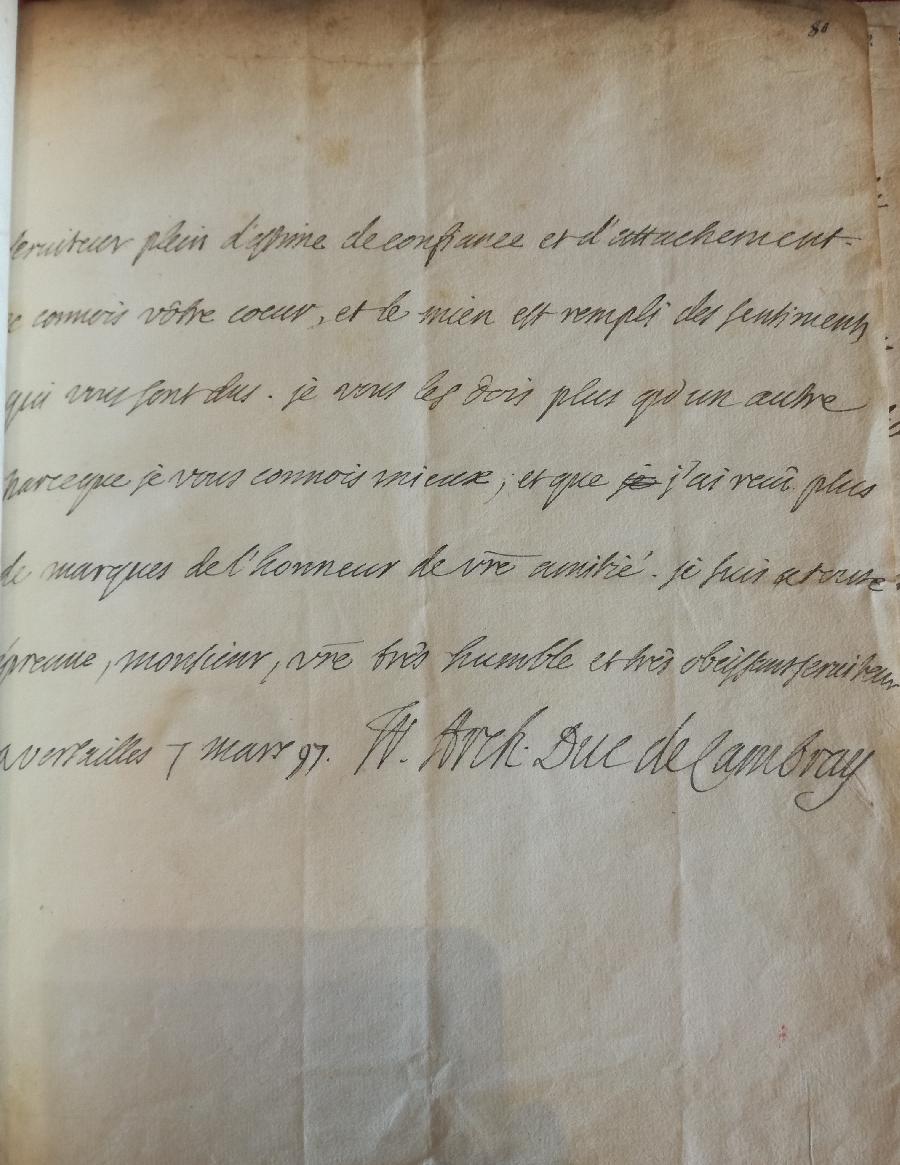 80
seruiteur plein d'estime de confiance et d'attachement.
je connois vôtre coeur, et le mien est rempli des sentiments
qui vous sont dus. je vous les dois plus qu'un autre
parceque je vous connois mieux; et que je j'ai receu plus
de marques de l'honneur de vre amitié. je suis a toute
épreuue, monsieur, vre très humble et très obeissant seruiteur
a versailles 7 mars 97. Fr. Arch. Duc de Cambray